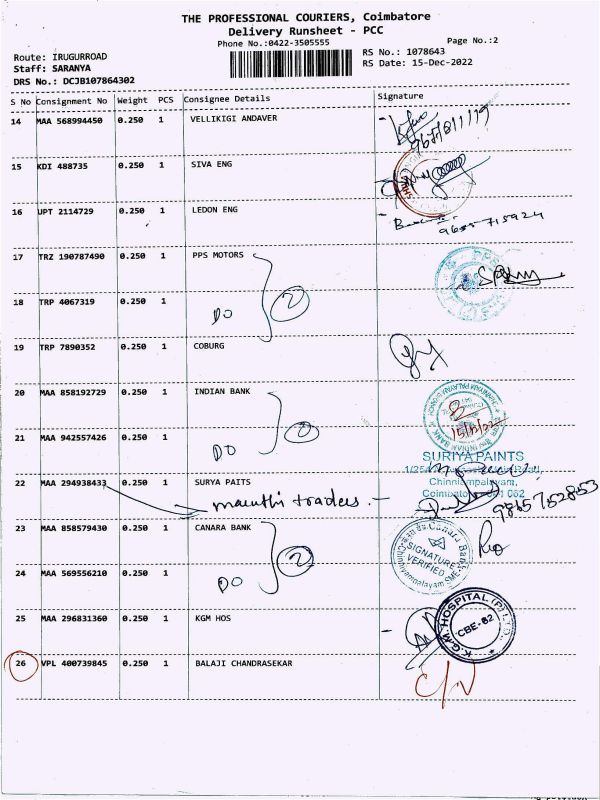 THE PROFESSIONAL COURIERS, Coimbatore
Delivery Runsheet - PCC
Phone No.:0422-3505555
Page No.:2
Route: IRUGURROAD
RS No.: 1078643
Staff: SARANYA
RS Date: 15-Dec-2022
DRS No.: DCJB107864302
S No Consignment No Weight PCS Consignee Details Signature
14 MAA 568994450 0.250 1 VELLIKIGI ANDAVER
15 KDI 488735 0.250 1 SIVA ENG
16 UPT 2114729 0.250 1 LEDON ENG
17 TRZ 190787490 0.250 1 PPS MOTORS
18 TRP 4067319 0.250 1 DO 2
19 TRP 7890352 0.250 1 COBURG
20 MAA 858192729 0.250 1 INDIAN BANK
15/12/22
21 MAA 942557426 0.250 1 DO 2
SURIYA PAINTS
22 MAA 294938433 0.250 1 SURYA PAITS
Chinniampalayam,
maruthi traders.
9865752853
23 MAA 858579430 0.250 1 CANARA BANK
Canara Bank
SIGNATURE VERIFIED
Chinniampalayam SME
24 MAA 569556210 0.250 1 DO 2
25 MAA 296831360 0.250 1 KGM HOS
K.G.M. HOSPITAL (P) LTD.
CBE-62
26 VPL 400739845 0.250 1 BALAJI CHANDRASEKAR